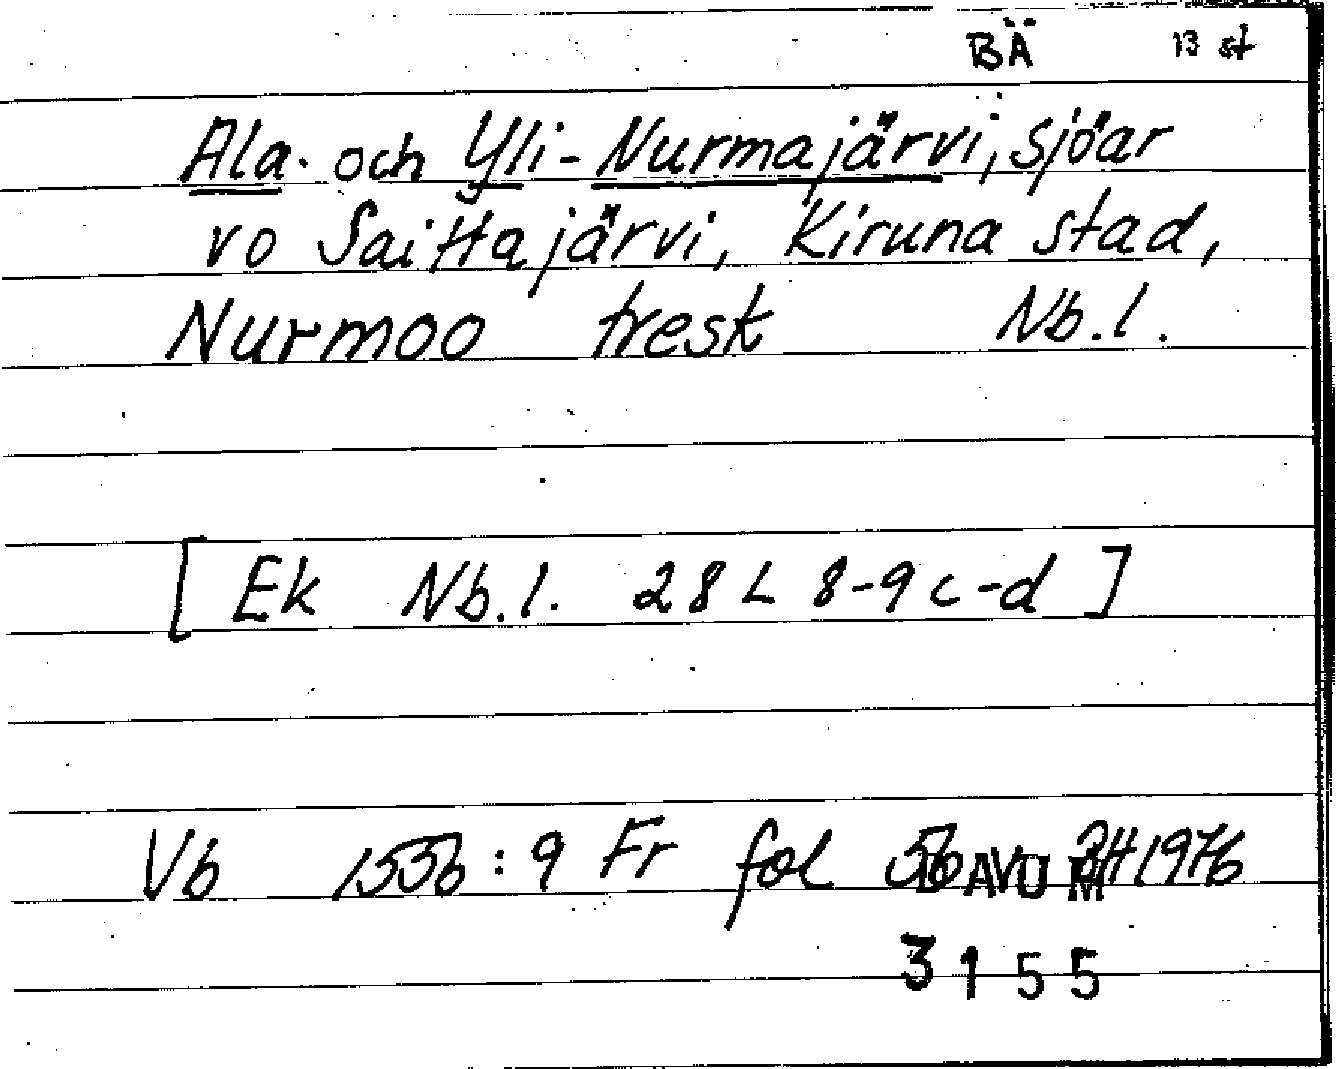 BÄ 13 st
Ala- och Yli-Nurmajärvi, sjöar
vo Saittajärvi, Kiruna stad,
Nurmoo tresk Nb.l.
[Ek Nb.l. 28 L 8-9 c-d]
Vb 1553b:9 Fr fol 5b DAVUM 1976
3155